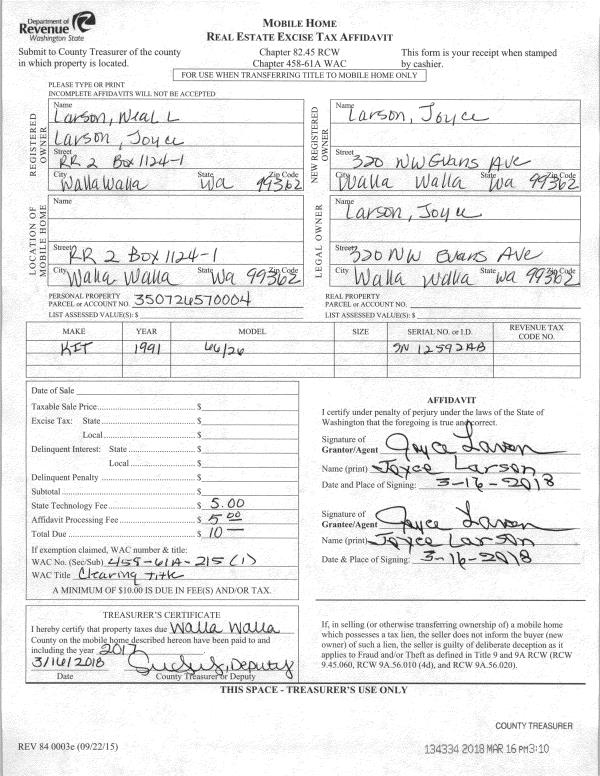 Department of
Revenue
Washington State
MOBILE HOME
REAL ESTATE EXCISE TAX AFFIDAVIT
Submit to County Treasurer of the county
in which property is located.
Chapter 82.45 RCW
Chapter 458-61A WAC
This form is your receipt when stamped
by cashier.
FOR USE WHEN TRANSFERRING TITLE TO MOBILE HOME ONLY
PLEASE TYPE OR PRINT
INCOMPLETE AFFIDAVITS WILL NOT BE ACCEPTED
REGISTERED OWNER
Name
Larson, Neal L
Larson, Joyce
Street
RR 2 Box 1124-1
City State Zip Code
Walla Walla Wa 99362
NEW REGISTERED OWNER
Name
Larson, Joyce
Street
320 NW Evans Ave
City State Zip Code
Walla Walla Wa 99362
LOCATION OF MOBILE HOME
Name
Street
RR 2 Box 1124-1
City State Zip Code
Walla Walla Wa 99362
LEGAL OWNER
Name
Larson, Joyce
Street
320 NW Evans Ave
City State Zip Code
Walla Walla Wa 99362
PERSONAL PROPERTY
PARCEL or ACCOUNT NO. 350726570004
LIST ASSESSED VALUE(S): $
REAL PROPERTY
PARCEL or ACCOUNT NO.
LIST ASSESSED VALUE(S): $
MAKE YEAR MODEL SIZE SERIAL NO. or I.D. REVENUE TAX CODE NO.
KIT 1991 66/26 SN 12592AB
Date of Sale
Taxable Sale Price $
Excise Tax: State $
Local $
Delinquent Interest: State $
Local $
Delinquent Penalty $
Subtotal $
State Technology Fee $ 5.00
Affidavit Processing Fee $ 5 00
Total Due $ 10 —
If exemption claimed, WAC number & title:
WAC No. (Sec/Sub) 458-61A-215 (1)
WAC Title Clearing title
A MINIMUM OF $10.00 IS DUE IN FEE(S) AND/OR TAX.
AFFIDAVIT
I certify under penalty of perjury under the laws of the State of
Washington that the foregoing is true and correct.
Signature of
Grantor/Agent Joyce Larson
Name (print) Joyce Larson
Date and Place of Signing: 3-16-2018
Signature of
Grantee/Agent Joyce Larson
Name (print) Joyce Larson
Date & Place of Signing: 3-16-2018
TREASURER'S CERTIFICATE
I hereby certify that property taxes due Walla Walla
County on the mobile home described hereon have been paid to and
including the year 2017
3/16/2018 Deputy
Date County Treasurer or Deputy
If, in selling (or otherwise transferring ownership of) a mobile home
which possesses a tax lien, the seller does not inform the buyer (new
owner) of such a lien, the seller is guilty of deliberate deception as it
applies to Fraud and/or Theft as defined in Title 9 and 9A RCW (RCW
9.45.060, RCW 9A.56.010 (4d), and RCW 9A.56.020).
THIS SPACE - TREASURER'S USE ONLY
COUNTY TREASURER
REV 84 0003e (09/22/15)
134334 2018 MAR 16 PM3:10